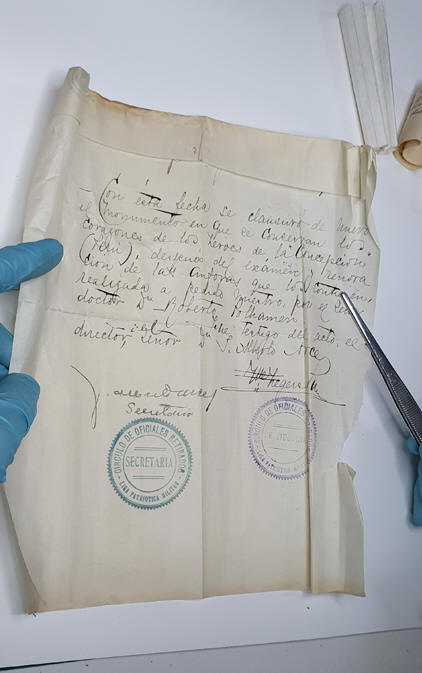 Con esta fecha se clausuró de nuevo
el monumento en que se conservan los
corazones de los héroes de la Concepción
(Perú), después del examen y renova
ción de las ánforas que los contienen,
realizada a pedido nuestro, por el
doctor Dn Roberto Alhamen
testigo del acto, el
director, señor Dn S. Alberto Arce
Secretario
CIRCULO DE OFICIALES RETIRADOS
SECRETARIA
LIGA PATRIOTICA MILITAR
CIRCULO DE OFICIALES RETIRADOS